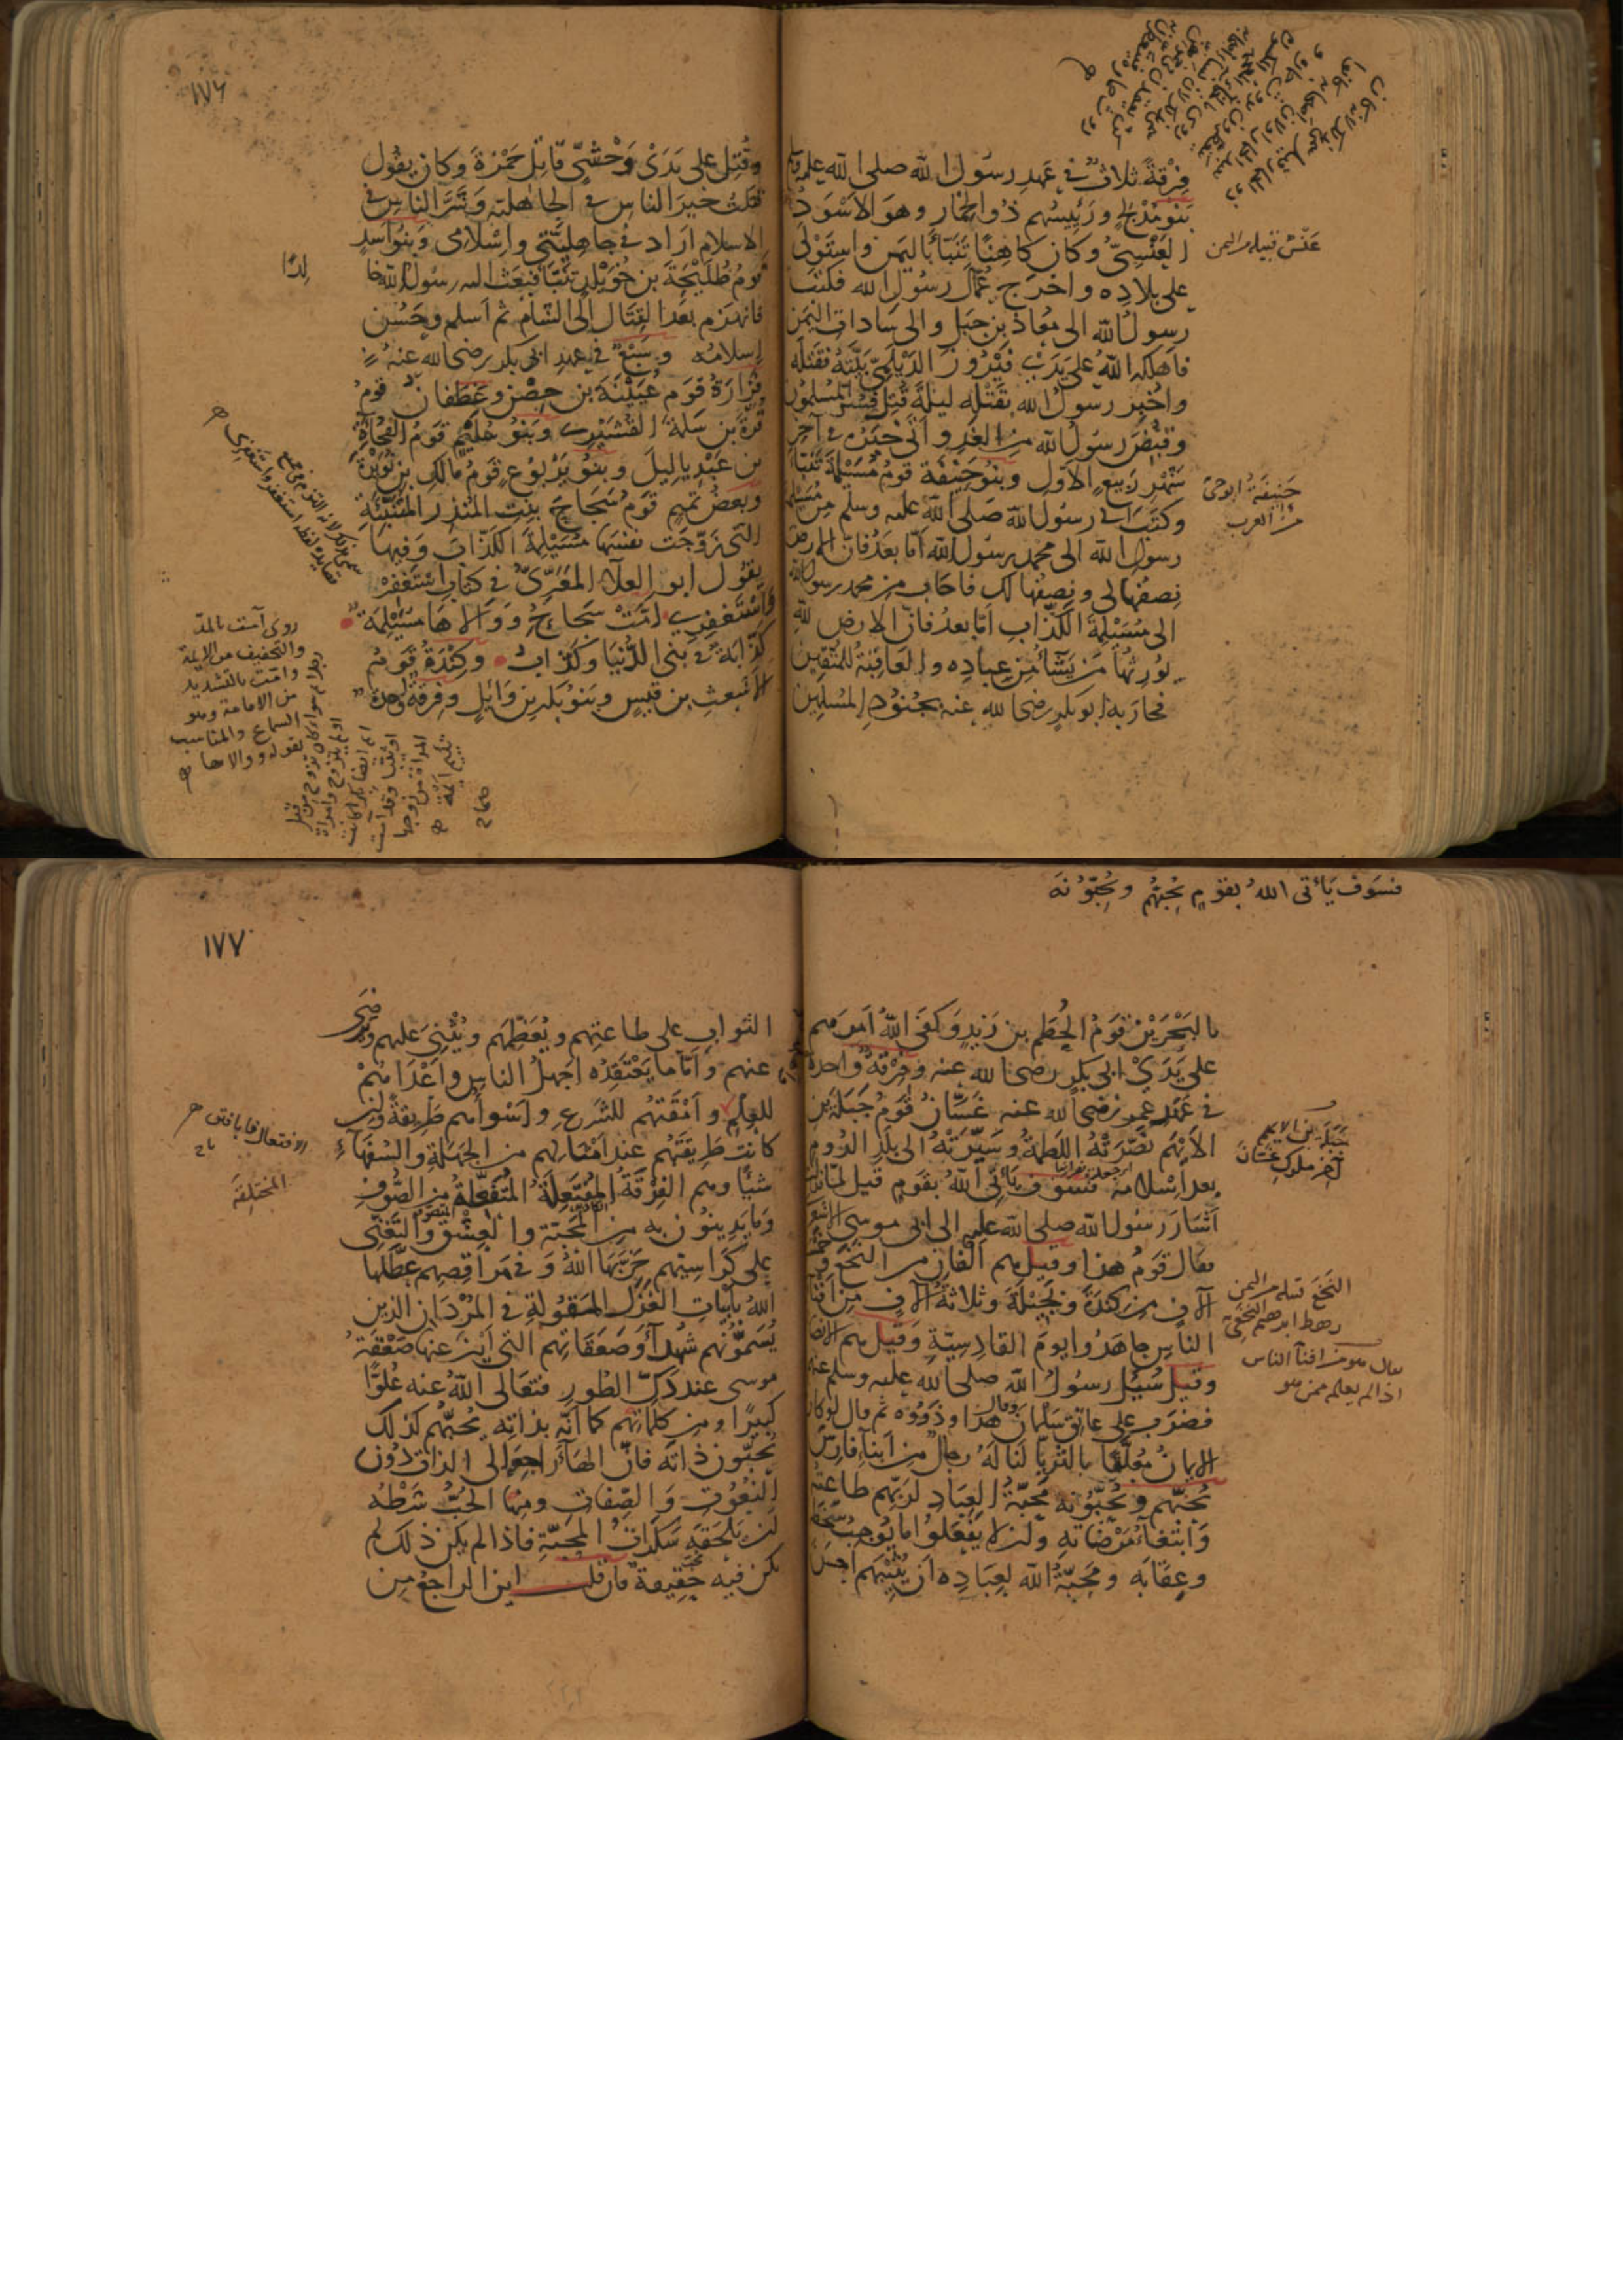 فِرْقةً ثلاثٌ في عَهدِ رسُول الله صلى الله عليه
بَنو مُدْلجٍ ورَئِيسُهم ذُو الخِمار وهو الاَسْوَد
العَنْسِيّ وكان كاهِنًا تَنَبّأ باليمن واستَوْلى
على بلاده واخرج عُمّالَ رسُول الله فكتَبَ
رسولُ الله الى مُعاذ بن جَبَل والى سَادات اليمن
فاهلكه اللهُ على يَدَيْ فَيْرُوز الدَيْلَمِيّ بَيَّتَهُ فقتله
واُخْبِر رسولُ الله بقَتْلِه ليلةَ قُتِل فَسُرّ المسلمُون
وقُبِضَ رسُولُ الله من الغدِ واَتى خَبَرُه في آخِر
شَهْرِ رَبيعٍ الاَوّلِ وبنو حَنِيْفة قومُ مُسَيْلِمة تَنَبّأ
وكَتَبَ الى رسول الله صلى الله عليه وسلم من مُسَيْلِمة
رسول الله الى محمد رسُول الله اَمّا بعَدُ فانّ الارض
نِصفُها لى ونِصفُها لك فاجاب من محمد رسول الله
الى مُسَيْلِمةَ الكَذّابِ اَمّا بعدُ فانّ الارضَ لله
يُورثُها مَن يَشَآءُ من عِبادِه والعَاقِبَةُ للمتّقين
فحارَبه ابو بكر رضى الله عنه بجُنُودِ المُسْلِمين
عَنْسٌ قبيلة من اليمن
حَنِيفَةُ ابو حىّ
من العرب
١٧٦
وقُتِل على يَدَيْ وَحْشيّ قاتِل حَمْزةَ وكان يقُول
قتلتُ خيرَ الناسِ في الجاهلية وشَرَّ الناسِ في
الاسلامِ اَراد في جاهِليّتي واِسْلامى وبَنُو اَسَدٍ
قومُ طُلَيْحَةَ بن خُوَيْلِد تَنَبّأ فبَعَثَ اليه رسُولُ الله خالِدًا
فانهزم بعدَ القِتَالِ الى الشام ثم اَسلم وحَسُن
اِسلامُه وسَبْعٌ في عهدِ ابى بكر رضى الله عنه
فَزَارَةُ قوم عُيَيْنَة بن حِصْنٍ وغَطَفان قومُ
قُرّة بن سَلَمة القُشَيْرى وبَنُو سُلَيْم قومُ الفُجاءَةِ
بن عَبْدِ يا ليلَ وبنو يَرْبُوعٍ قومُ مالك بن نُوَيْرةَ
وبعضُ تميمٍ قومُ سَجَاحَ بنتِ المُنذِر المُتَنبِّئة
التى زوّجَتْ نفسَها مُسَيْلِمَة الكذّاب وفيها
يقُول ابو العلاء المَعَرّىّ في كتاب اسْتَغْفِرْ
واسْتَغفِرى اَمَّتْ سَجاحُ ووَالاهَا مُسَيْلِمَةٌ
كَذّابَةٌ في بَنى الدُّنْيا وكَذّابُ وكِنْدَةُ قومُ
الاشعثِ بن قيسٍ وبَنو بَكر بن وَائِلٍ وفِرقةٌ واحدة
روى آمت بالمدّ
والتخفيف من الايمة
وامّت بالتشديد
من الامامة وهو
السماع والمناسب
لقوله ووالاها
فسَوفَ يَأتى اللهُ بقوْمٍ يُحِبّهُم ويُحِبّوْنَه
بالبَحْرَيْن قومُ الحُطَم بن زَيدٍ وكفى اللهُ اَمرَهم
على يَدَيْ ابى بكرٍ رضى الله عنه وفِرْقةٌ واحدةٌ
في عَهْدِ عمر رضى الله عنه غَسَّانُ قومُ جَبَلَة بن
الاَيْهَم نَصَّرَتْهُ اللَطمةُ وسَيَّرتْهُ الى بلَدِ الرُوم
بعد اِسْلامه فسَوف يَأتى اللهُ بقَومٍ قيل لمّا نزلت
اَشَارَ رسُول الله صلى الله عليه الى ابى موسى الاشعرى
فقال قومُ هذا وقيل هم اَلفانِ من النَخَع وخمسة
آلافٍ من كِنْدَةَ وبَجِيْلَة وثلاثةُ آلافٍ من اَفناء
الناسِ جاهَدُوا يومَ القادِسِيّةِ وقيل هم الانصار
وقيل سُئِل رسُولُ الله صلى الله عليه وسلم عنهم
فضرَب على عاتِق سَلمانَ وقال هذا وذَوُوْه ثم قال لو كان
الايمانُ مُعلَّقًا بالثريّا لَنَالَهُ رِجالٌ من ابناءِ فارسَ
يُحبّهم ويُحبّونه مَحبّةُ العِبَادِ لرَبّهم طاعتُه
وَابْتِغآءُ مَرْضَاتِه وانْ لا يَفْعَلوُا ما يُوجبُ سَخَطه
وعِقَابَه ومَحبّةُ الله لِعِبَادِه اَنْ يُثِيْبَهم احسَنَ
جَبَلَة بن الايهم
آخِر ملوك غسّانَ
النَخَع قبيلة من اليمن
رهط ابرهيم النَخَعِيّ
يقال هو من افناء الناس
اذا لم يعلم ممن هو
١٧٧
الثوابِ على طاعتِهم ويُعَظِّمَهم ويُثْنِىَ عليهم ويَرْضَى
عنهم واَمّا ما يَعْتقِدُه اَجهلُ الناسِ واَعْدَاهُمْ
للعِلْم واَمْقَتُهُم للشّرعِ واَسْوأُهم طَرِيقةً وان
كانتْ طَريقَتُهُم عندَ اَمْثالِهم من الجهَلَةِ والسُفَهَآءِ
شَيْئًا وهم الفِرْقَةُ المُفْتَعِلَةُ المُتَفَعِّلةُ من الصُوف
وَما يَدِينُوْن به من المَحَبّة والعِشْق والتَّغَنّى
على كَراسِيّهم خَرّبَهَا اللهُ وفي مَراقِصِهم عَطّلَها
اللهُ بأَبْياتِ الغَزَلِ المَقوُلةِ في المُرْدَانِ الذين
يُسَمّونهم شُهَدآءَ وصَعَقاتِهم التى اَيْنَ عنها صَعْقَةُ
موسى عند دَكِّ الطُورِ فتعَالى اللهُ عنه عُلوًّا
كبيرًا ومن كَلِماتِهم كما اَنّه بذاتِه يُحبّهم كذلك
يُحبّون ذاتَه فانّ الهَآءَ راجعَةٌ الى الذات دُونَ
النُعُوْتِ وَالصِّفاتِ ومنها الحُبُّ شَرْطُه
اَنْ تَلْحَقَه سَكَراتُ المَحَبّةِ فاذا لم يكن ذلك لم
تكن فيه حَقِيقةٌ فان قلت اين الراجعُ من
المختلقة